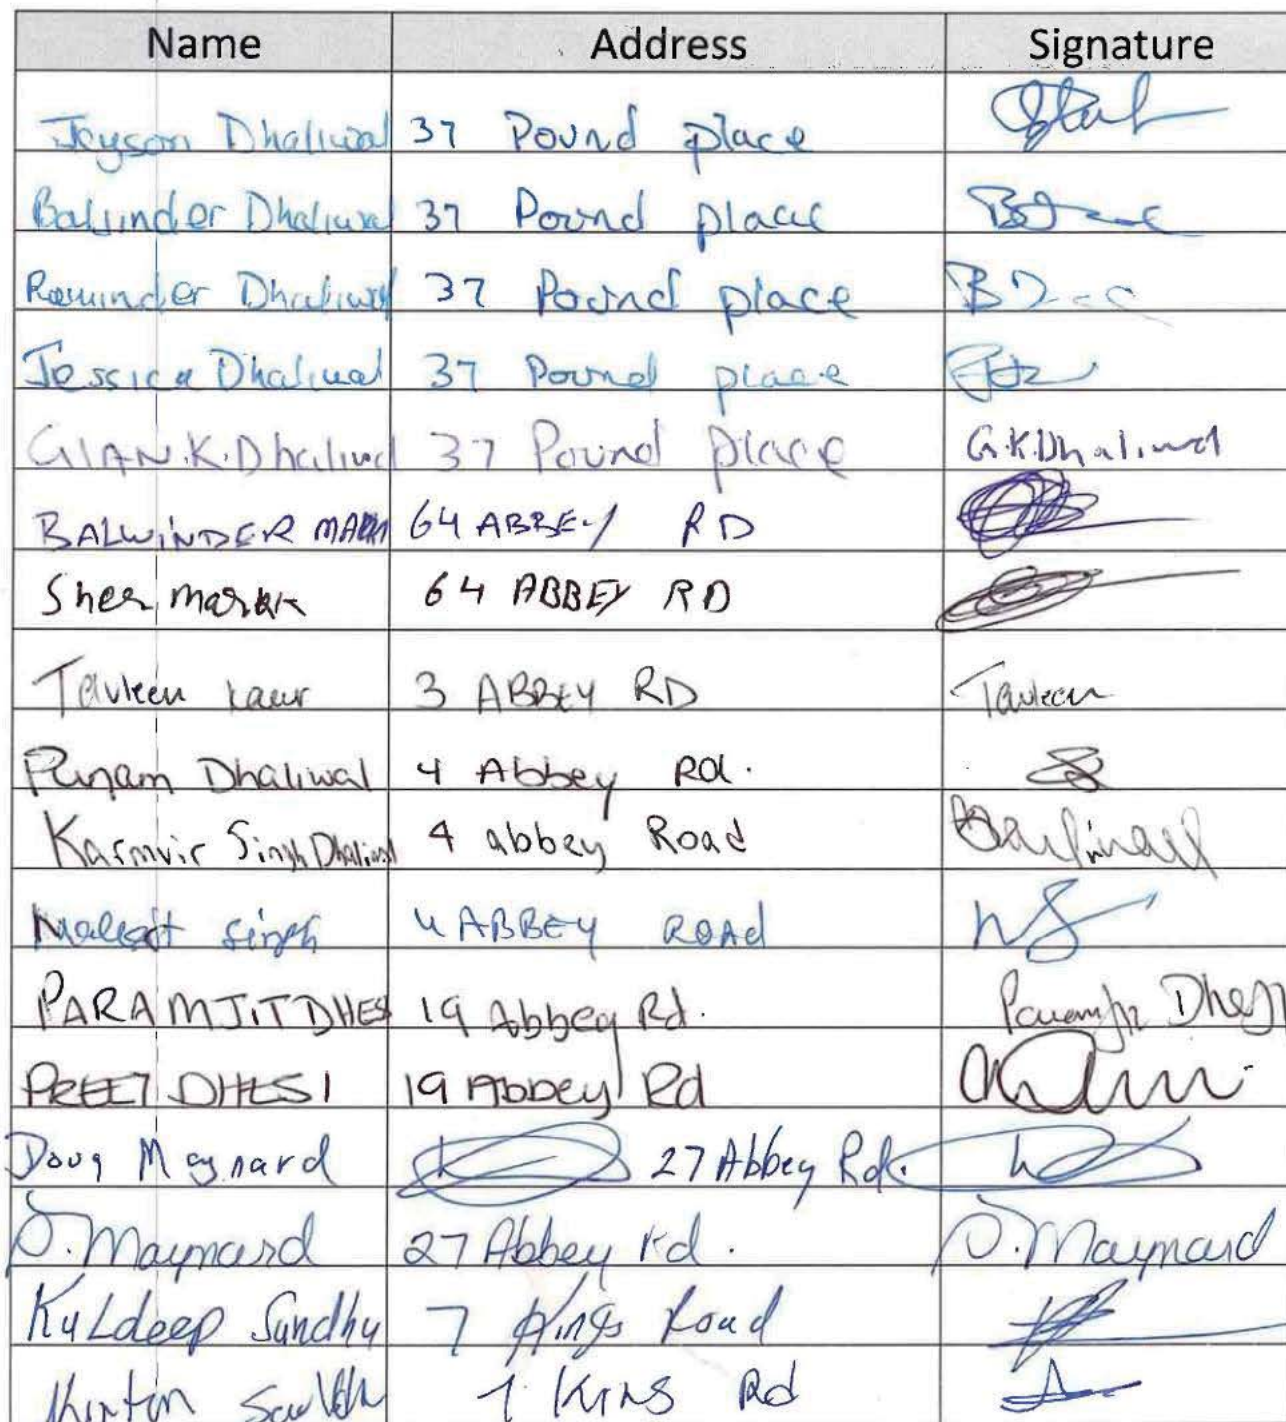 Name Address Signature
Jeyson Dhaliwal 37 Pound place
Balvinder Dhaliwal 37 Pound place
Raminder Dhaliwal 37 Pound place
Jessica Dhaliwal 37 Pound place
GIAN.K.Dhaliwal 37 Pound place G.K.Dhaliwal
BALWINDER 64 ABBEY RD
Sher 64 ABBEY RD
Tavleen kaur 3 ABBEY RD Tavleen
Punam Dhaliwal 4 Abbey Rd.
Karmvir Singh Dhaliwal 4 abbey Road
singh 4 ABBEY ROAd
PARAMJIT DHESI 19 Abbey Rd. Paramjit Dhesi
PREET DHESI 19 Abbey Rd
Doug Maynard 27 Abbey Rd.
D. Maynard 27 Abbey rd. D. Maynard
KuLdeep Sandhu 7 Kings Road
7 KINS Rd